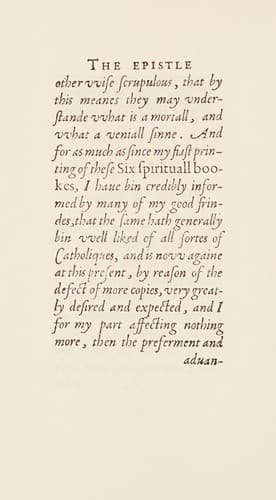 THE EPISTLE
other vvise scrupulous, that by
this meanes they may vnder-
stande vvhat is a mortall, and
vvhat a veniall sinne. And
for as much as since my first prin-
ting of these Six spirituall boo-
kes, I haue bin credibly infor-
med by many of my good frin-
des, that the same hath generally
bin vvell liked of all sortes of
Catholiques, and is novv againe
at this present, by reason of the
defect of more copies, very great-
ly desired and expected, and I
for my part affecting nothing
more, then the preferment and
aduan-